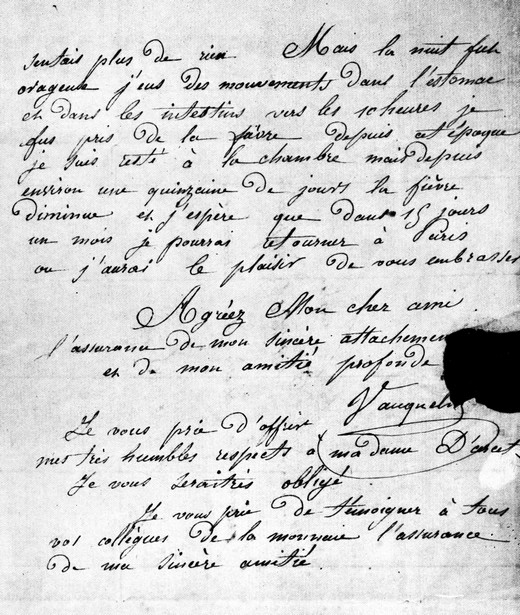 sentais plus de rien Mais la nuit fut
orageuse j'eus des mouvements dans l'estomac
et dans les intestins vers les 10 heures je
fus pris de la fièvre depuis cet époque
je suis resté à la chambre mais depuis
environ une quinzaine de jours la fièvre
diminue et j'espère que dans 15 jours
un mois je pourrai retourner à Paris
ou j'aurai le plaisir de vous embrasser
Agréez Mon cher ami
l'assurance de mon sincère attachement
et de mon amitié profonde
Vauquelin
Je vous prie d'offrir
mes très humbles respects à madame D'arcet
Je vous serai très obligé
Je vous prie de témoigner à tous
vos collègues de la monnaie l'assurance
de ma sincère amitié.